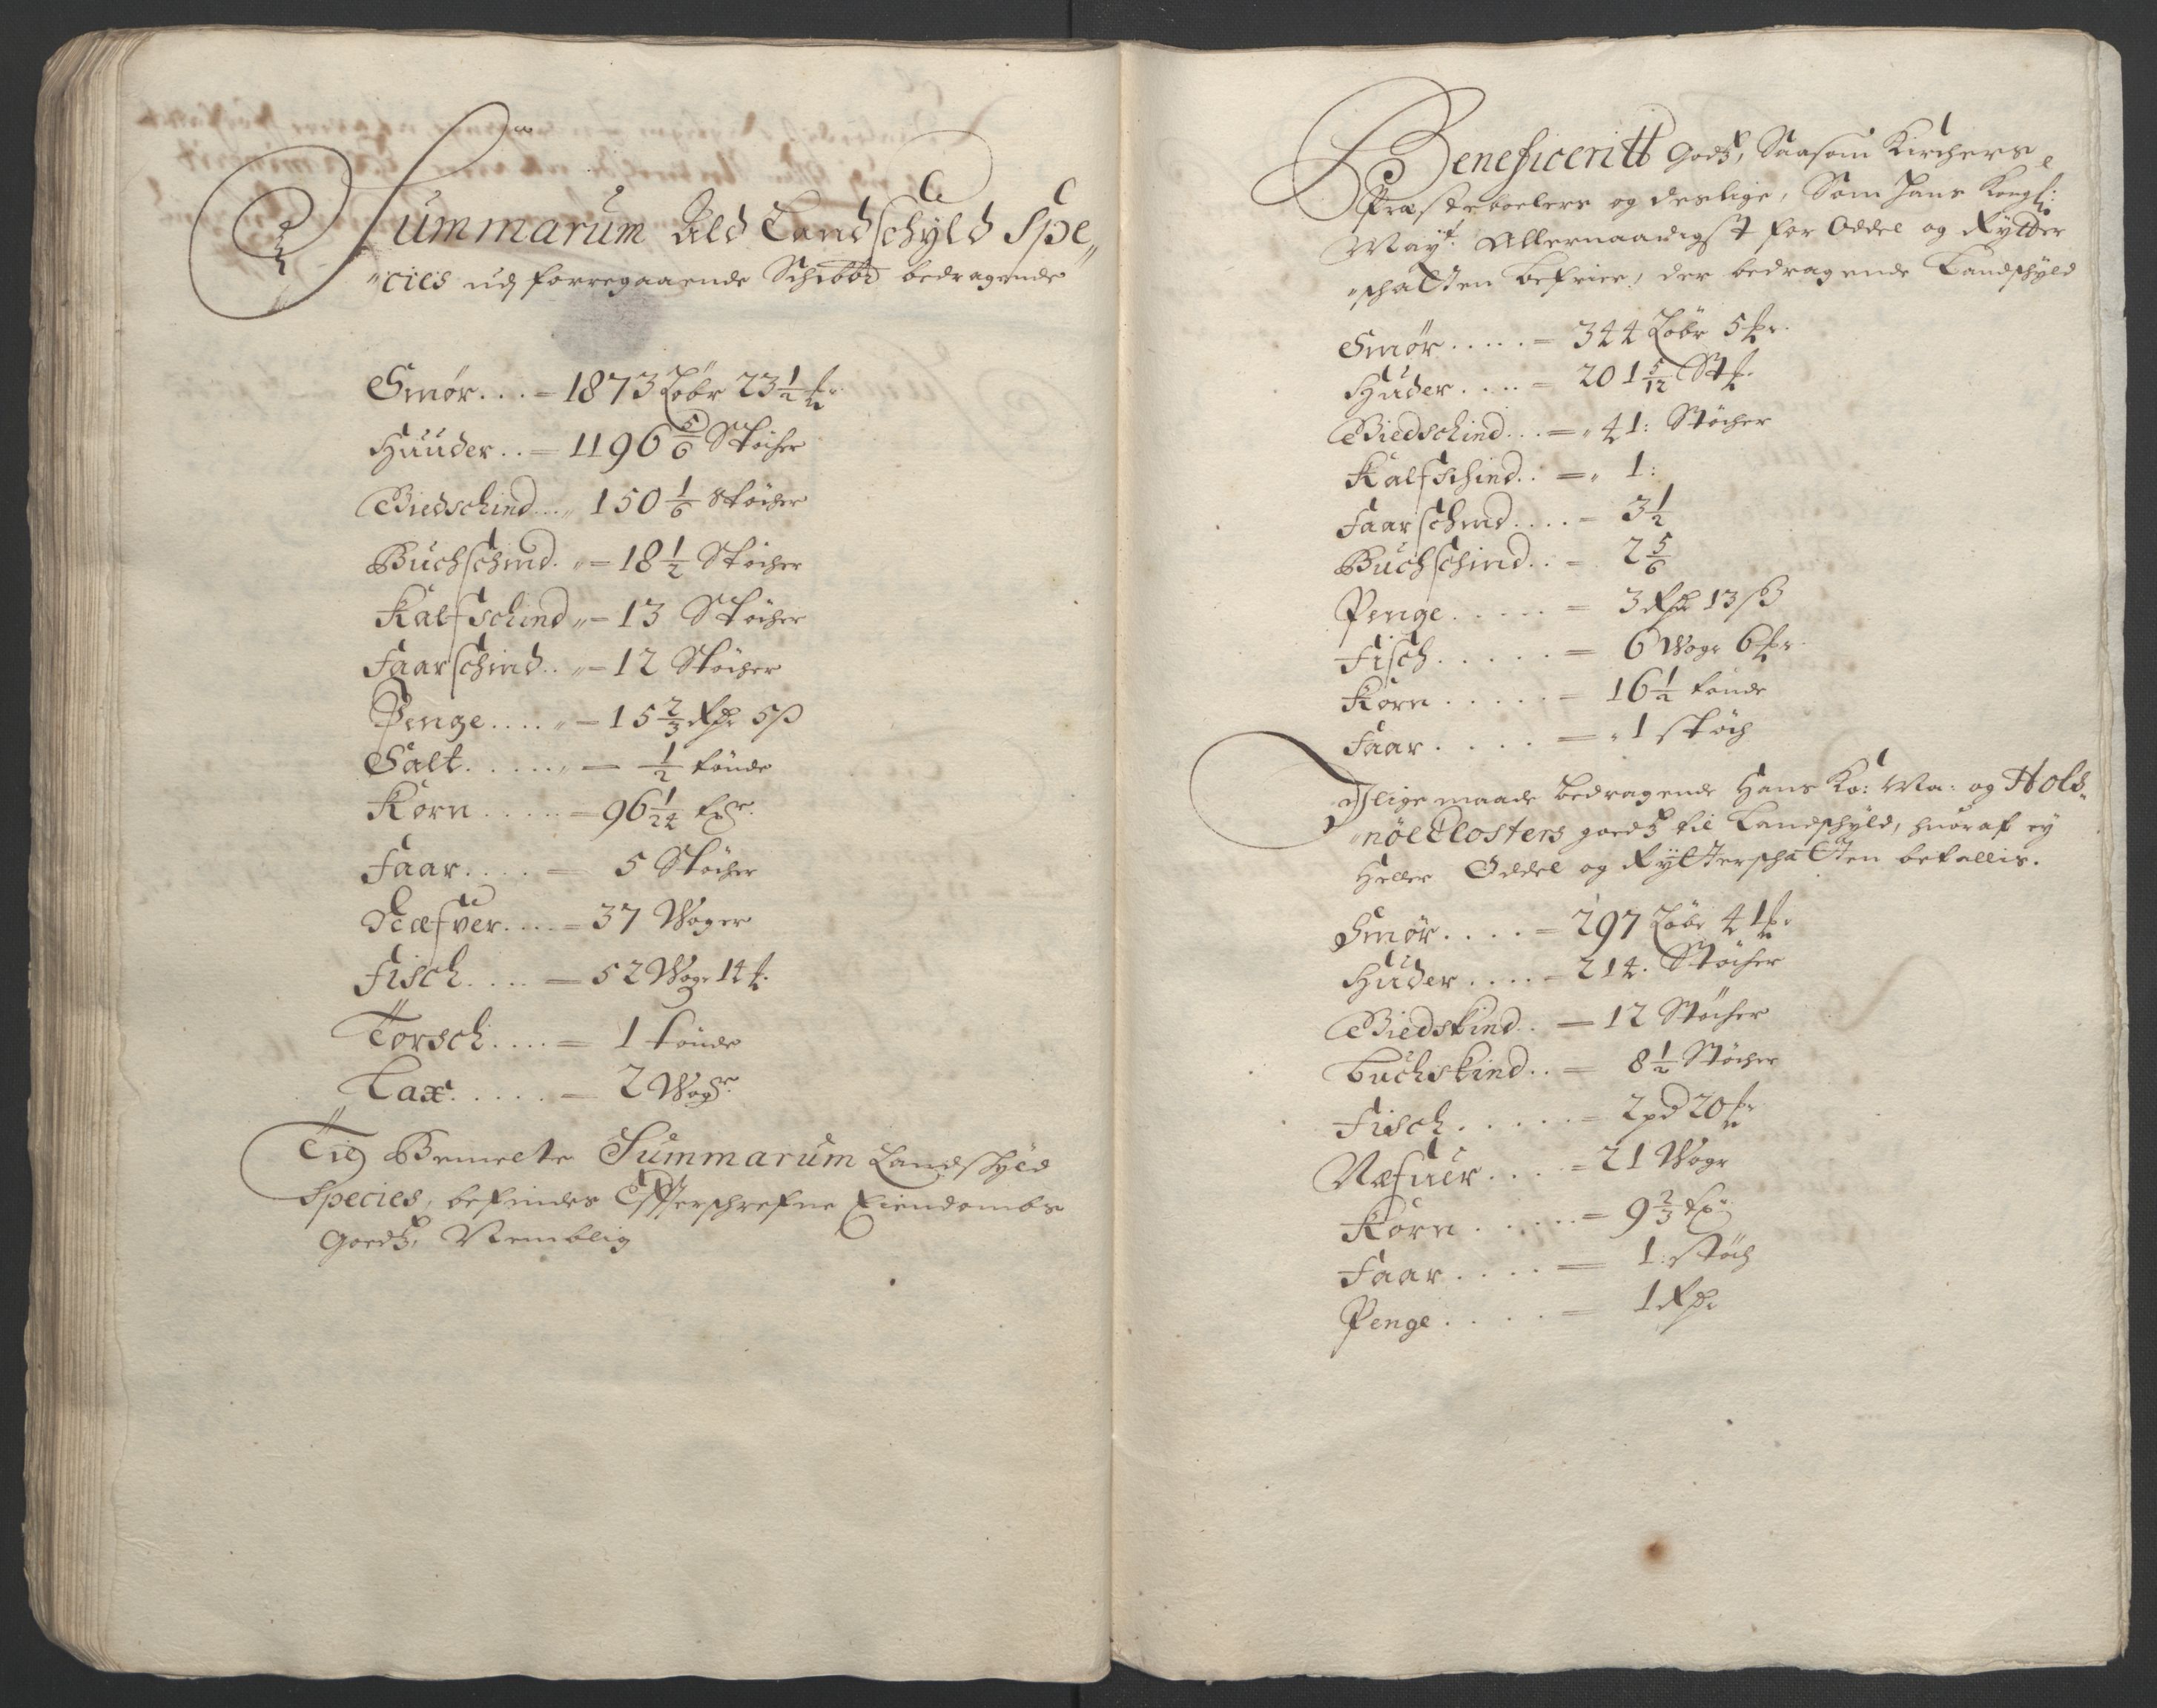 Summarum Ald Landschyld Spe„
„cies udj forregaaende Schibbr bedragende
Smør . . . = 1873 Løbr 23 1/2 ℔r
Huuder . . = 1196 5/6 Støcher
Giedschind . . . „ 150 1/6 Støcher
Buchschind . „ = 18 1/2 Støcher
Kalfschind „ = 13 Støcher
Faarschind . . „ = 12 Støcher
Penge . . . . „ = 15 2/3 Rdr 5 ß
Salt . . . . . „ = 1/2 tønde
Korn . . . . . = 96 1/24 tdr
Faar . . . . = 5 Støcher
Næfver . . . . = 37 Woger
Fisch . . . . = 52 Wogr 14 ℔.
Torsch . . . . = 1 tønde
Lax . . . . . = 2 Wogr
Til Bemelte Summarum Landschyld
Species, befindes Effterschrefne Eiendombs
Goedz, Nemblig
Beneficeritt Godz, Saasom Kirchers,
Præsteboelers og deslige, Som Hans Kongl:
Mayt. Allernaadigst for Oddel og Rytter
„schatten befrier, der bedragende Landschyld
Smør . . . . . = 344 Løbr 5 ℔r.
Huder . . . . = 201 5/12 St℔.
Giedschind . . . = „ 41: Støcher
Kalfschind . . = „ 1:
Faarschind . . . . = 3 1/2
Buchschind . . = 2 5/6
Penge . . . . . = 3 Rdr 13 ß
Fisch . . . . . = 6 Wogr 6 ℔r.
Korn . . . . . = 16 1/2 tønde
Faar . . . . = „ 1 støch
J lige maade bedragende Hans Ko: Ma: og Hols„
„nøe Closters goedz til Landschyld, huoraf ey
Heller Oddel og Rytterschatten betallis.
Smør . . . . = 297 Løbr 41 ℔r
Huder . . . . = 214. Støcher
Giedskind . . = 12 Støcher
Buchskind . . = 8 1/2 Støcher
Fisch . . . . . = 2 pd 20 ℔r
Næfuer . . . . = 21 Wogr
Korn . . . . . = 9 2/3 tdr
Faar . . . . = 1: støch
Penge . . . . = 1 Rdr